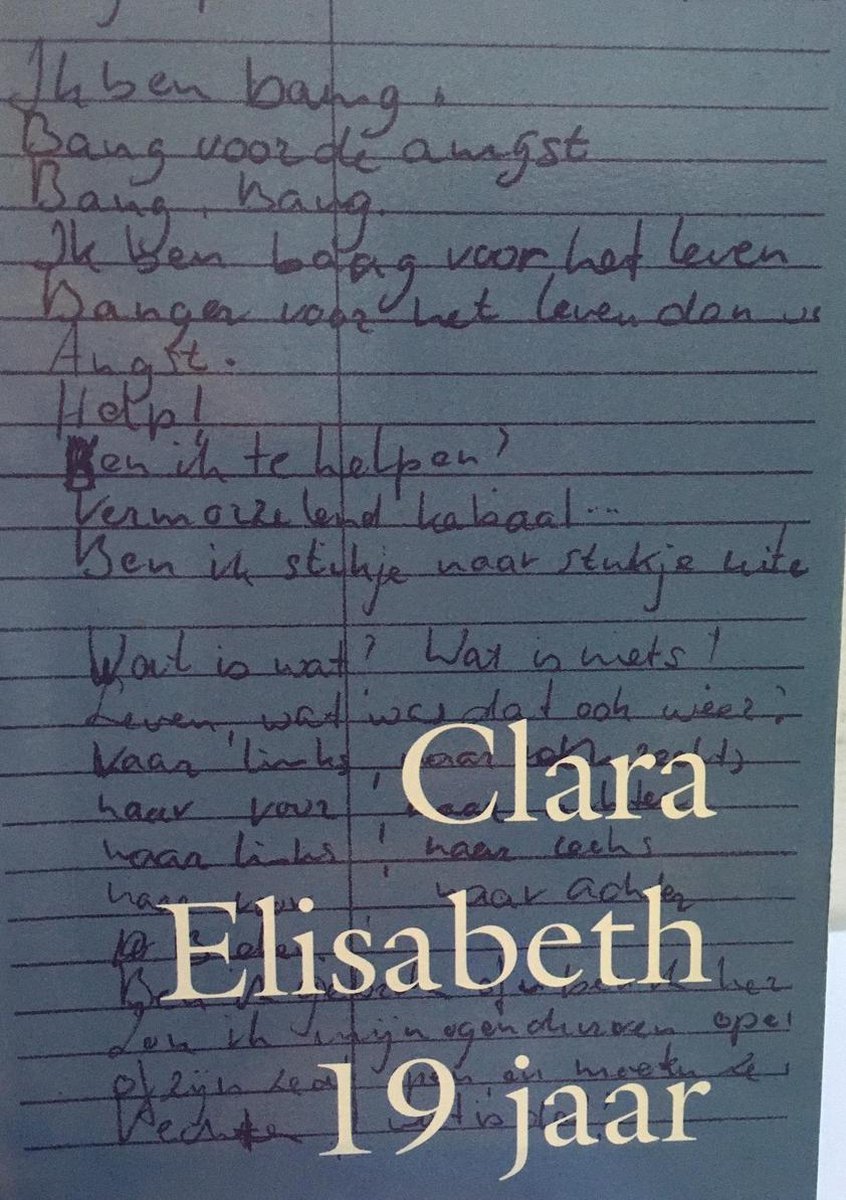 Ik ben bang.
Bang voor de angst
Bang. Bang.
Ik ben bang voor het leven
Banger voor het leven dan
Angst.
Help!
Ben ik te helpen?
Vermorzelend kabaal...
Ben ik stukje naar stukje uite
Wat is wat? Wat is niets!
Leven, wat was dat ook weer?
Naar links, naar rechts
naar voor
naar links, naar rechs
naar voor, naar achter
Ben ik
Zou ik mijn ogen durven ope
of zijn ze al open en moeten ze
Clara
Elisabeth
19 jaar